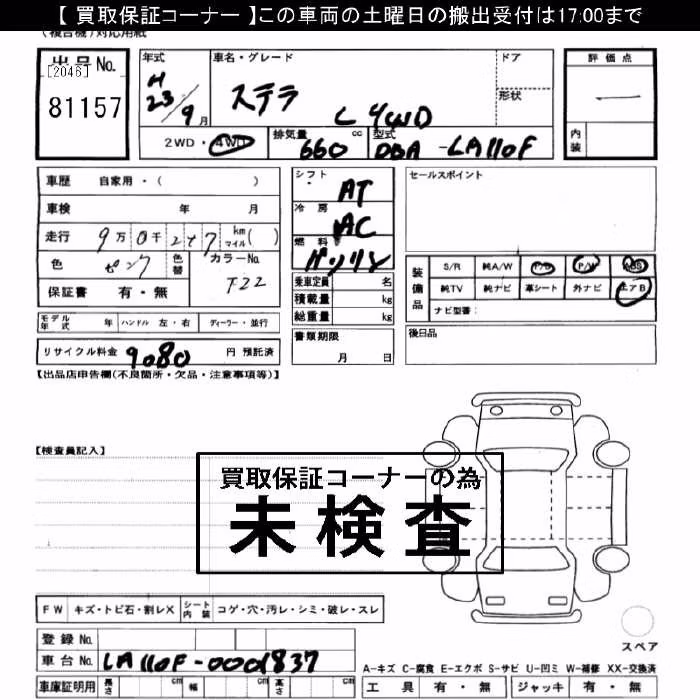 【 買取保証コーナー 】この車両の土曜日の搬出受付は17:00まで
(複合機)対応用紙
出品No.
[2046]
81157
年式
H
23/9月
車名・グレード
ステラ
L 4WD
ドア
形状
2WD・4WD
排気量
660 cc
型式
DBA-LA110F
評価点
—
内装
車歴 自家用・( )
車検 年 月
走行 9万0千2 7 km マイル( )
色 ピンク 色替
カラーNo.
保証書 有・無
シフト
AT
冷房
AC
燃料
ガソリン
乗車定員 名
積載量 kg
総重量 kg
書類期限
月 日
セールスポイント
装備品
S/R 純A/W P/S P/W ABS
純TV 純ナビ 革シート 外ナビ エアB
ナビ型番:
後日品
モデル年式 年 ハンドル 左・右 ディーラー・並行
リサイクル料金 9080 円 預託済
【出品店申告欄(不良箇所・欠品・注意事項等)】
【検査員記入】
買取保証コーナーの為
未検査
FW キズ・トビ石・割レX シート内装 コゲ・穴・汚レ・シミ・破レ・スレ
登録No.
車台No. LA110F-0001837
車庫証明用 長さ cm 幅 cm 高さ cm
スペア
A-キズ C-腐食 E-エクボ S-サビ U-凹ミ W-補修 XX-交換済
工具 有・無 ジャッキ 有・無